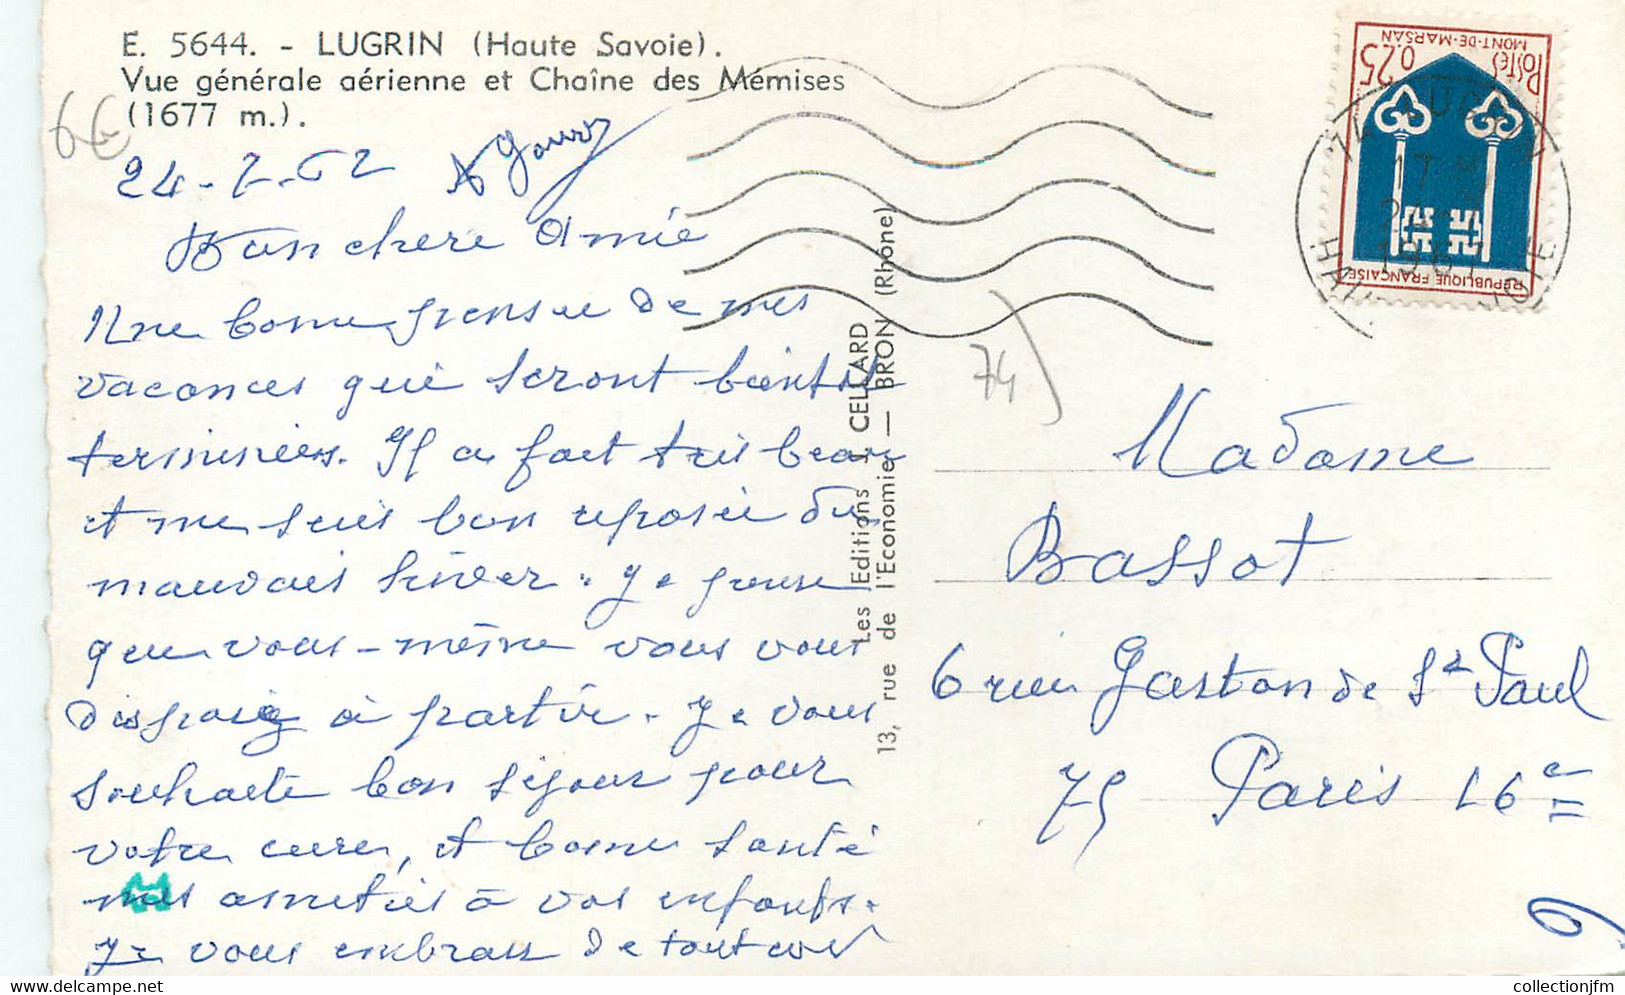 E. 5644. - LUGRIN (Haute Savoie).
Vue générale aérienne et Chaîne des Mémises
(1677 m.).
6€
Ma chere Amie
Une bonne pensee de mes
vacances qui seront bientot
terminées. Il a fait très beau
et me suis bien reposée du
mauvais hiver. Je pense
que vous-même vous vous
disposiez à partir. Je vous
souhaite bon séjour pour
votre cure, et bonne santé
mes amitiés à vos enfants.
Je vous embrasse de tout coeur
Les Editions J. CELLARD
13, rue de l'Economie — BRON (Rhône)
74)
POSTES 0,25
MONT-DE-MARSAN
REPUBLIQUE FRANÇAISE
Madame
Bassot
6 rue Gaston de St Paul
75 Paris 16e
collectionjfm